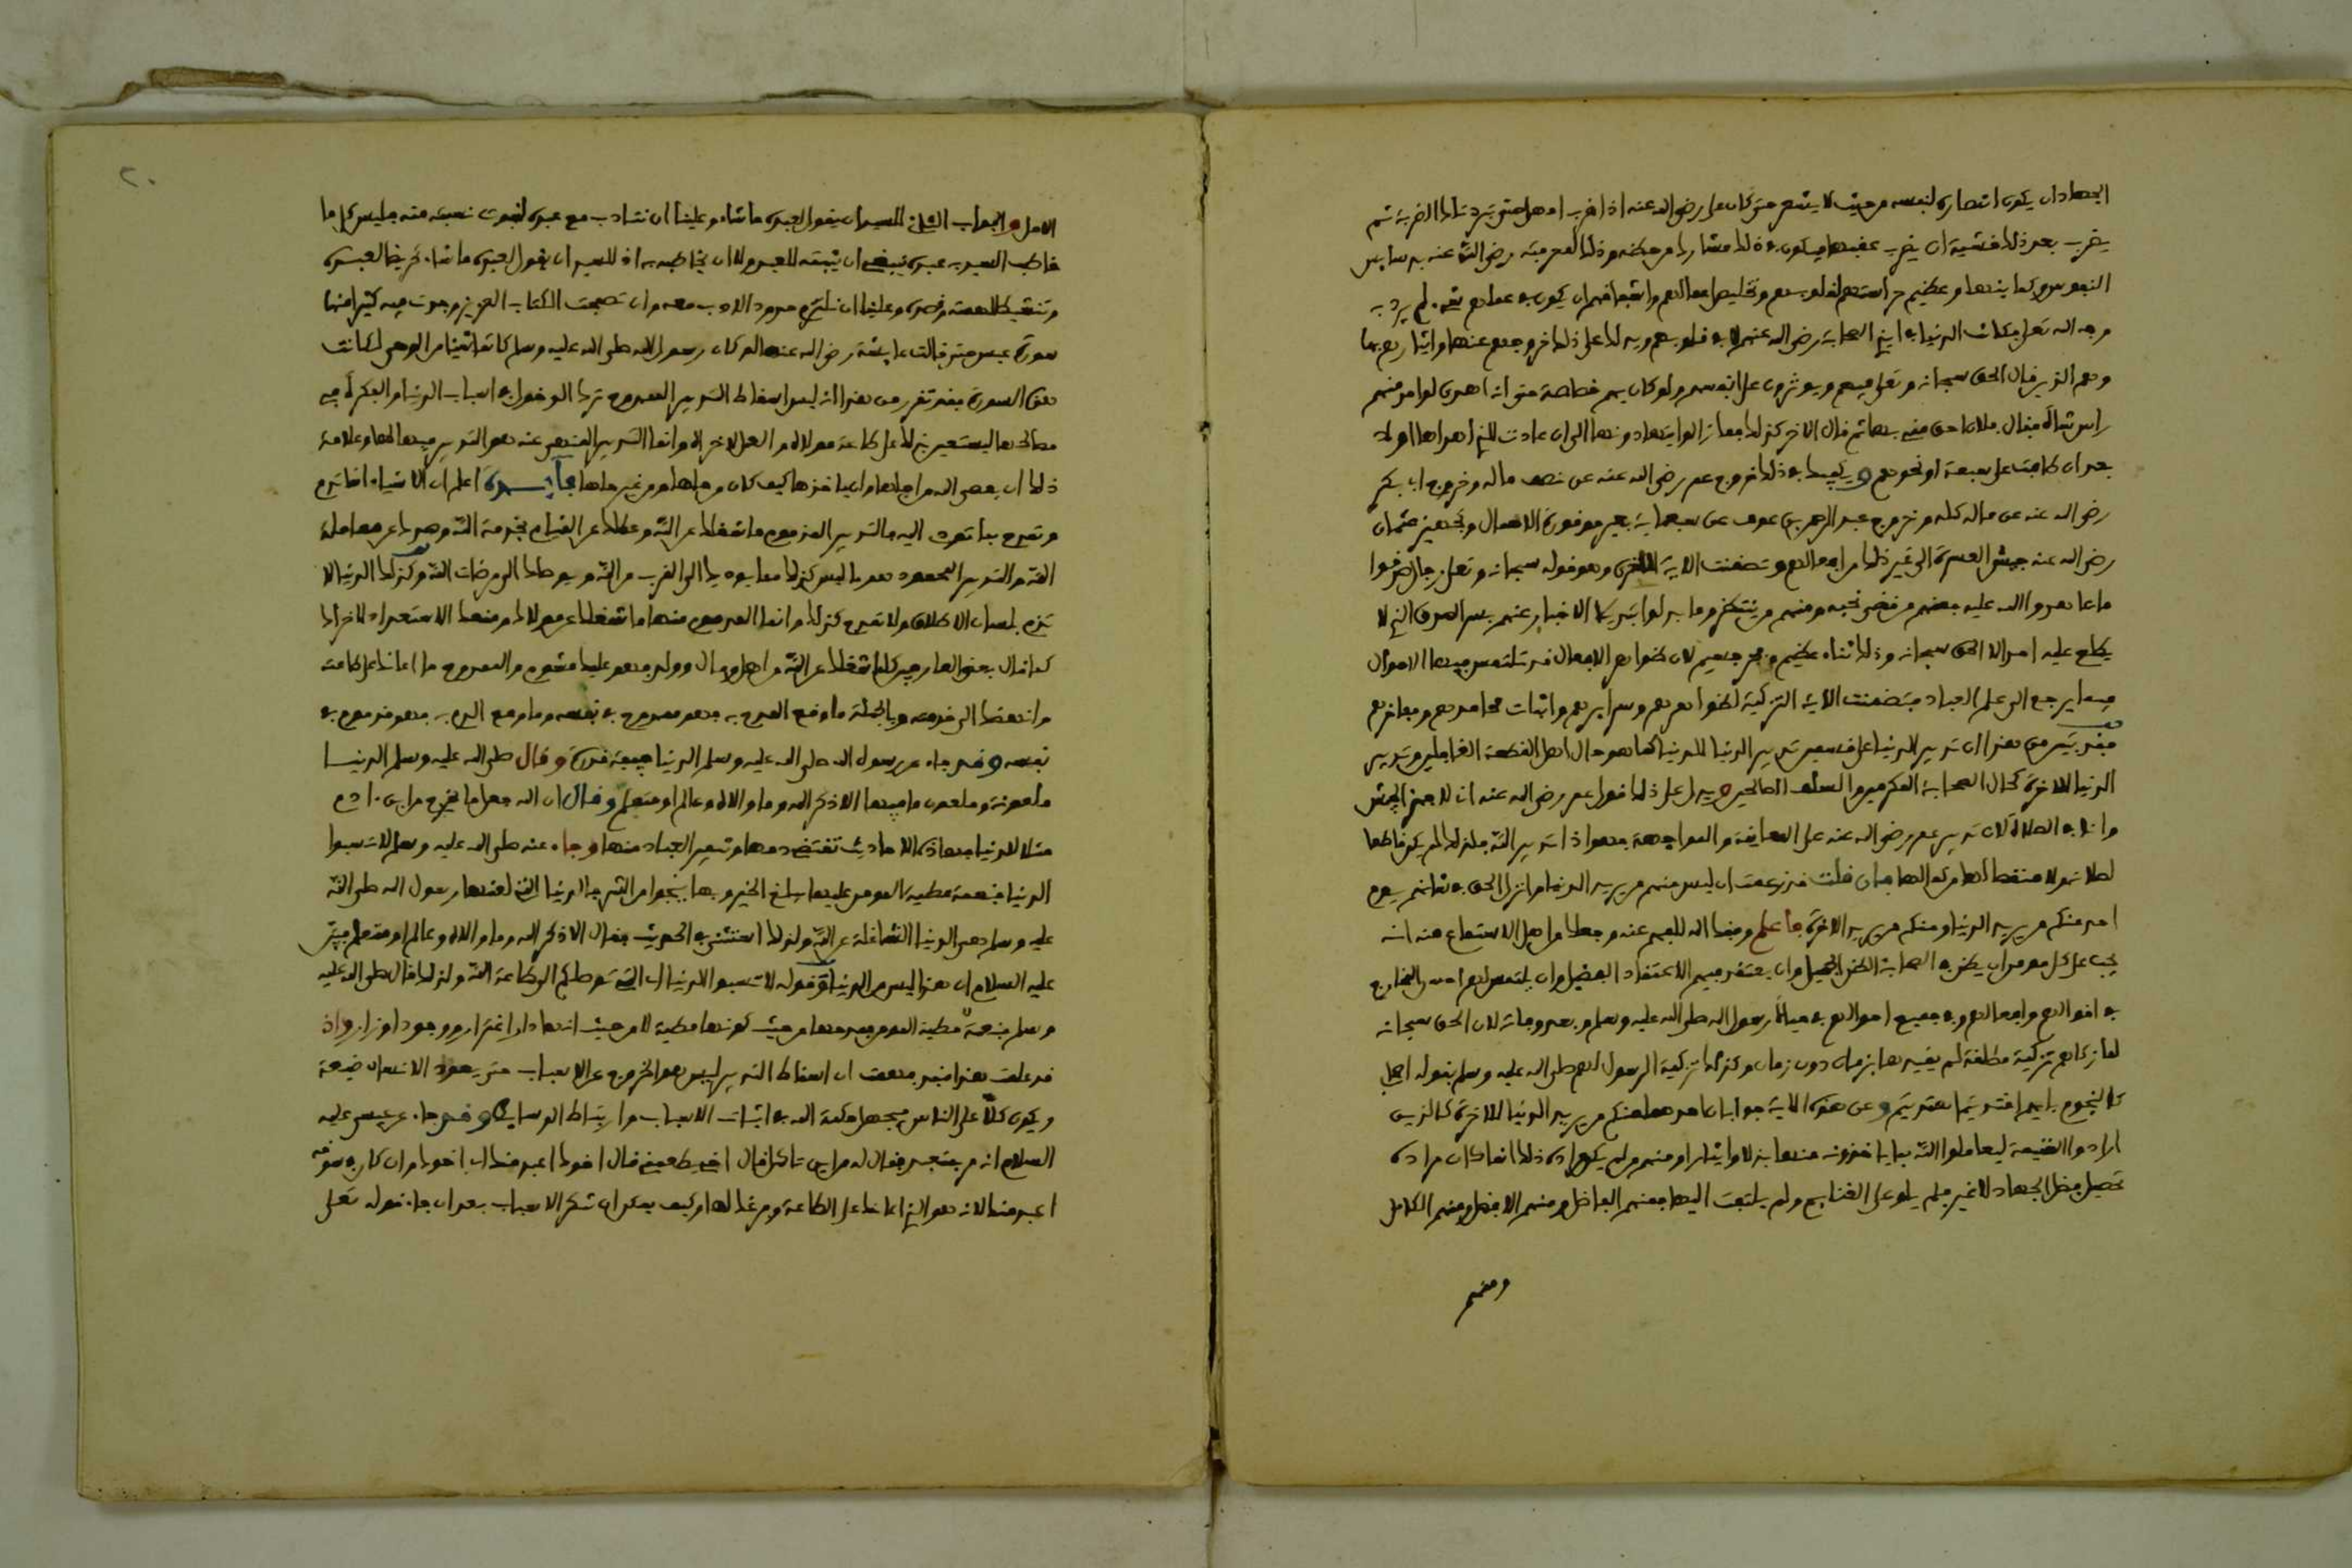 الجهاد ان يكون انتصاره لنفسه من حيث لا يشعر حتى كان علي رضي الله عنه اذا ضرب امهل حتى تبرد تلك الضربة ثم
يضرب بعد ذلك خشية ان يضرب عقبها فيكون في ذلك مشاركا من حظه وذلك لمعرفته رضي الله عنه بدسايس
النفوس وكماينها وعظيم حراستهم لقلوبهم وتخليص اعمالهم واشفاقهم ان يكون في عملهم شيء لم يرد به
وجه الله تعلى فكانت الدنيا في ايدي الصحابة رضي الله عنهم لا في قلوبهم ويدلك على ذلك خروجهم عنها وايثارهم بها
وهم الذين قال الحق سبحانه وتعلى فيهم ويوثرون على انفسهم ولو كان بهم خصاصة حتى انه اهدي لواحد منهم
راس شاة فقال فلان احق مني بها ثم قال الاخر كذلك فما زالوا يتهادونها الى ان عادت للذي اهداها اولا
بعد ان طافت على سبعة او نحوهم ويكفيك في ذلك خروج عمر رضي الله عنه عن نصف ماله وخروج ابي بكر
رضي الله عنه عن ماله كله وخروج عبد الرحمن بن عوف عن سبعماية بعير موفورة الاحمال وتجهيز عثمان
رضي الله عنه جيش العسرة الى غير ذلك من افعالهم وتضمنت الاية الاخرى وهو قوله سبحانه وتعلى رجال صدقوا
ما عاهدوا الله عليه فمنهم من قضى نحبه ومنهم من ينتظر وما بدلوا تبديلا الاخبار عنهم بسر الصدق الذي لا
يطلع عليه احد الا الحق سبحانه وذلك ثناء عظيم وفخر جسيم لان ظواهر الافعال قد تلتبس فيها الاحوال
فيما يرجع الى علم العباد فتضمنت الاية التزكية لظواهرهم وسرايرهم واثبات محامدهم ومفاخرهم
فقد تبين من هذا ان تدبير الدنيا على قسمين تدبير الدنيا للدنيا كما هو حال اهل القطعة الغافلين وتدبير
الدنيا للاخرة كحال الصحابة المكرمين والسلف الصالحين ويدل على ذلك قول عمر رضي الله عنه اني لاجهز الجيش
وانا في الصلاة لان تدبير عمر رضي الله عنه على المعاينة والمواجهة فهو اذا تدبير الله فلذلك لم يكن قاطعا
لصلاته ولا منقصا لها من كمالها فان قلت قد زعمت ان ليس منهم من يريد الدنيا وانزل الحق في شانهم يوم
احد منكم من يريد الدنيا ومنكم من يريد الاخرة فاعلم وفقك الله للفهم عنه وجعلك من اهل الاستماع منه انه
يجب على كل مومن ان يظن في الصحابة الظن الجميل وان يعتقد فيهم الاعتقاد الفضيل وان يلتمس لهم احسن المخارج
في اقوالهم وافعالهم وفي جميع احوالهم في حياة رسول الله صلى الله عليه وسلم وبعد وفاته لان الحق سبحانه
لما زكاهم تزكية مطلقة لم يقيدها بزمان دون زمان وكذلك تزكية الرسول لهم صلى الله عليه وسلم بقوله اصحابي
كالنجوم بايهم اقتديتم اهتديتم وعن هذه الاية جوابان احدهما منكم من يريد الدنيا للاخرة كالذين
ارادوا الغنيمة ليعاملوا الله بما ياخذونه منها بذلا وايثارا ومنهم من لم يكن مراده ذلك انما كان مراده
تحصيل فضل الجهاد لا غير فلم يلو على الغنايم ولم يلتفت اليها فمنهم الفاضل ومنهم الافضل ومنهم الكامل
ومنهم
٢٠
الاكمل والجواب الثاني للسيد ان يقول لعبده ما شاء وعلينا ان نتادب مع عبده لثبوت نسبته منه فليس كل ما
خاطب السيد به عبده ينبغي ان نثبته للعبد ولا ان نخاطبه به اذ للسيد ان يقول لعبده ما شاء تحريضا لعبده
وتنشيطا لهمته وقصده وعلينا ان نلتزم حدود الادب معه وان تصفحت الكتاب العزيز وجدت فيه كثيرا منها
سورة عبس حتى قالت عايشة رضي الله عنها لو كان رسول الله صلى الله عليه وسلم كاتما شيئا من الوحي لكانت
هذه السورة فقد تقرر من هذا انه ليس اسقاط التدبير الممدوح ترك الدخول في اسباب الدنيا والفكرة في
مصالحها ليستعين بذلك على طاعة مولاه والعمل لاخراه وانما التدبير المنهي عنه هو التدبير فيها لها وعلامة
ذلك ان يعصي الله من اجلها وان ياخذها كيف كان من حلها ومن غير حلها فايدة اعلم ان الاشياء انما تذم
وتمدح بما تعود اليه فالتدبير المذموم ما شغلك عن الله وعطلك عن القيام بخدمة الله وصدك عن معاملة
الله والتدبير المحمود هو ما ليس كذلك مما يوديك الى القرب من الله ويوصلك الى مرضات الله وكذلك الدنيا لا
تذم بلسان الاطلاق ولا تمدح كذلك وانما المذموم منها ما شغلك عن مولاك ومنعك الاستعداد لاخراك
كما قال بعض العارفين كلما شغلك عن الله من اهل ومال وولد فهو عليك مشوم والممدوح ما اعانك على طاعته
وانهضك الى خدمته وبالجملة ما وقع المدح به فهو ممدوح في نفسه وما وقع الذم به فهو مذموم في
نفسه وقد جاء عن رسول الله صلى الله عليه وسلم الدنيا جيفة قذرة وقال صلى الله عليه وسلم الدنيا
ملعونة وملعون ما فيها الا ذكر الله وما والاه وعالم او متعلم وقال ان الله جعل ما يخرج من ابن ادم
مثلا للدنيا فهاذه الاحاديث تقتضي ذمها وتنفير العباد منها وجاء عنه صلى الله عليه وسلم لا تسبوا
الدنيا فنعمة مطية المومن عليها يبلغ الخير وبها ينجوا من الشر فالدنيا التي لعنها رسول الله صلى الله
عليه وسلم هي الدنيا الشاغلة عن الله ولذلك استثنى في الحديث فقال الا ذكر الله وما والاه وعالم او متعلم فبين
عليه السلام ان هذا ليس من الدنيا وقوله لا تسبوا الدنيا اي التي توصلكم الى طاعة الله ولذلك قال صلى الله عليه
وسلم فنعمة مطية المومن فمدحها من حيث كونها مطية لا من حيث انها دار اغترار ووجود اوزار واذ
قد علمت هذا فقد فهمت ان اسقاط التدبير ليس هو الخروج عن الاسباب حتى يعود الانسان ضيعة
ويكون كلا على الناس فيجهل حكمة الله في اثبات الاسباب وارتباط الوسايط وقد جاء عن عيسى عليه
السلام انه مر بمتعبد فقال له من اين تاكل قال اخي يطعمني فقال اخوك اعبد منك اي اخوك وان كان في سوقه
اعبد منك لانه هو الذي اعانك على الطاعة وفرغك لها وكيف يمكن ان تنكر الاسباب بعد ان جاء قوله تعلى